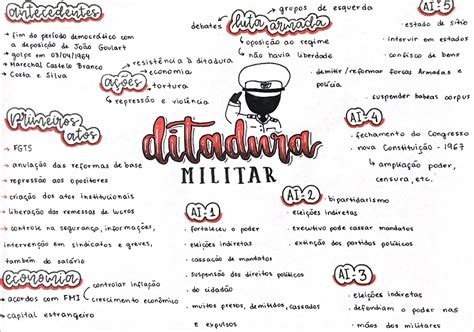 antecedentes
→ fim do período democrático com
a deposição de João Goulart
→ golpe em 07/04/1964
→ Marechal Castelo Branco
→ Costa e Silva
ações
→ resistência à ditadura
→ economia
→ tortura
→ repressão e violência
luta armada
debates
grupos de esquerda
→ oposição ao regime
→ não havia liberdade
AI-5
→ estado de sítio
→ intervir em estados
→ confisco de bens
→ demitir/reformar forças Armadas e
polícia
→ suspender habeas corpus
primeiros
atos
→ FGTS
→ anulação das reformas de base
→ repressão aos opositores
→ criação dos atos institucionais
→ liberação das remessas de lucros
→ controle na segurança, informações,
intervenção em sindicatos e greves,
também do salário
ditadura
MILITAR
AI-4
→ fechamento do Congresso
→ nova Constituição - 1967
↳ ampliação poder,
censura, etc.
AI-1
→ fortaleceu o poder
→ eleições indiretas
→ cassação de mandatos
→ suspensão dos direitos políticos
do cidadão
→ muitos presos, demitidos, cassados
e expulsos
AI-2
→ bipartidarismo
→ eleições indiretas
→ executivo pode cassar mandatos
→ extinção dos partidos políticos
AI-3
→ eleições indiretas
→ defendiam o poder nas
mãos dos militares
economia
→ controlar inflação
→ crescimento econômico
→ acordos com FMI
→ capital estrangeiro